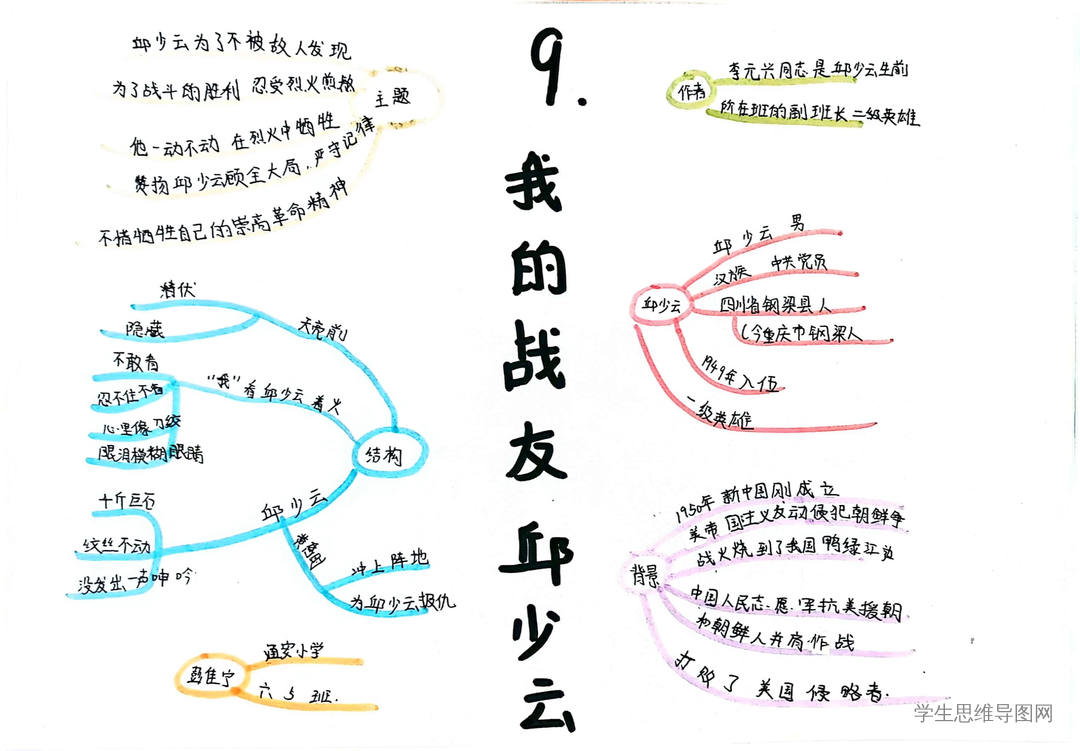 9.我的战友邱少云
主题
邱少云为了不被故人发现
为了战斗的胜利 忍受烈火煎熬
他一动不动 在烈火中牺牲
赞扬邱少云顾全大局,严守记律
不惜牺牲自己的崇高革命精神
作者
李元兴同志是邱少云生前
所在班的副班长二级英雄
邱少云
邱少云 男
汉族 中共党员
四川省铜梁县人
(今重庆市铜梁人
1949年入伍
一级英雄
结构
天亮前
潜伏
隐蔽
"我"看邱少云着火
不敢看
忍不住不看
心里像刀绞
眼泪模糊眼睛
邱少云
千斤巨石
纹丝不动
没发出一声呻吟
冲上阵地
为邱少云报仇
背景
1950年新中国刚成立
美帝国主义发动侵犯朝鲜争
战火烧到了我国鸭绿江边
中国人民志愿军抗美援朝
和朝鲜人并肩作战
打败了美国侵略者.
通安小学
六5班.
学生思维导图网